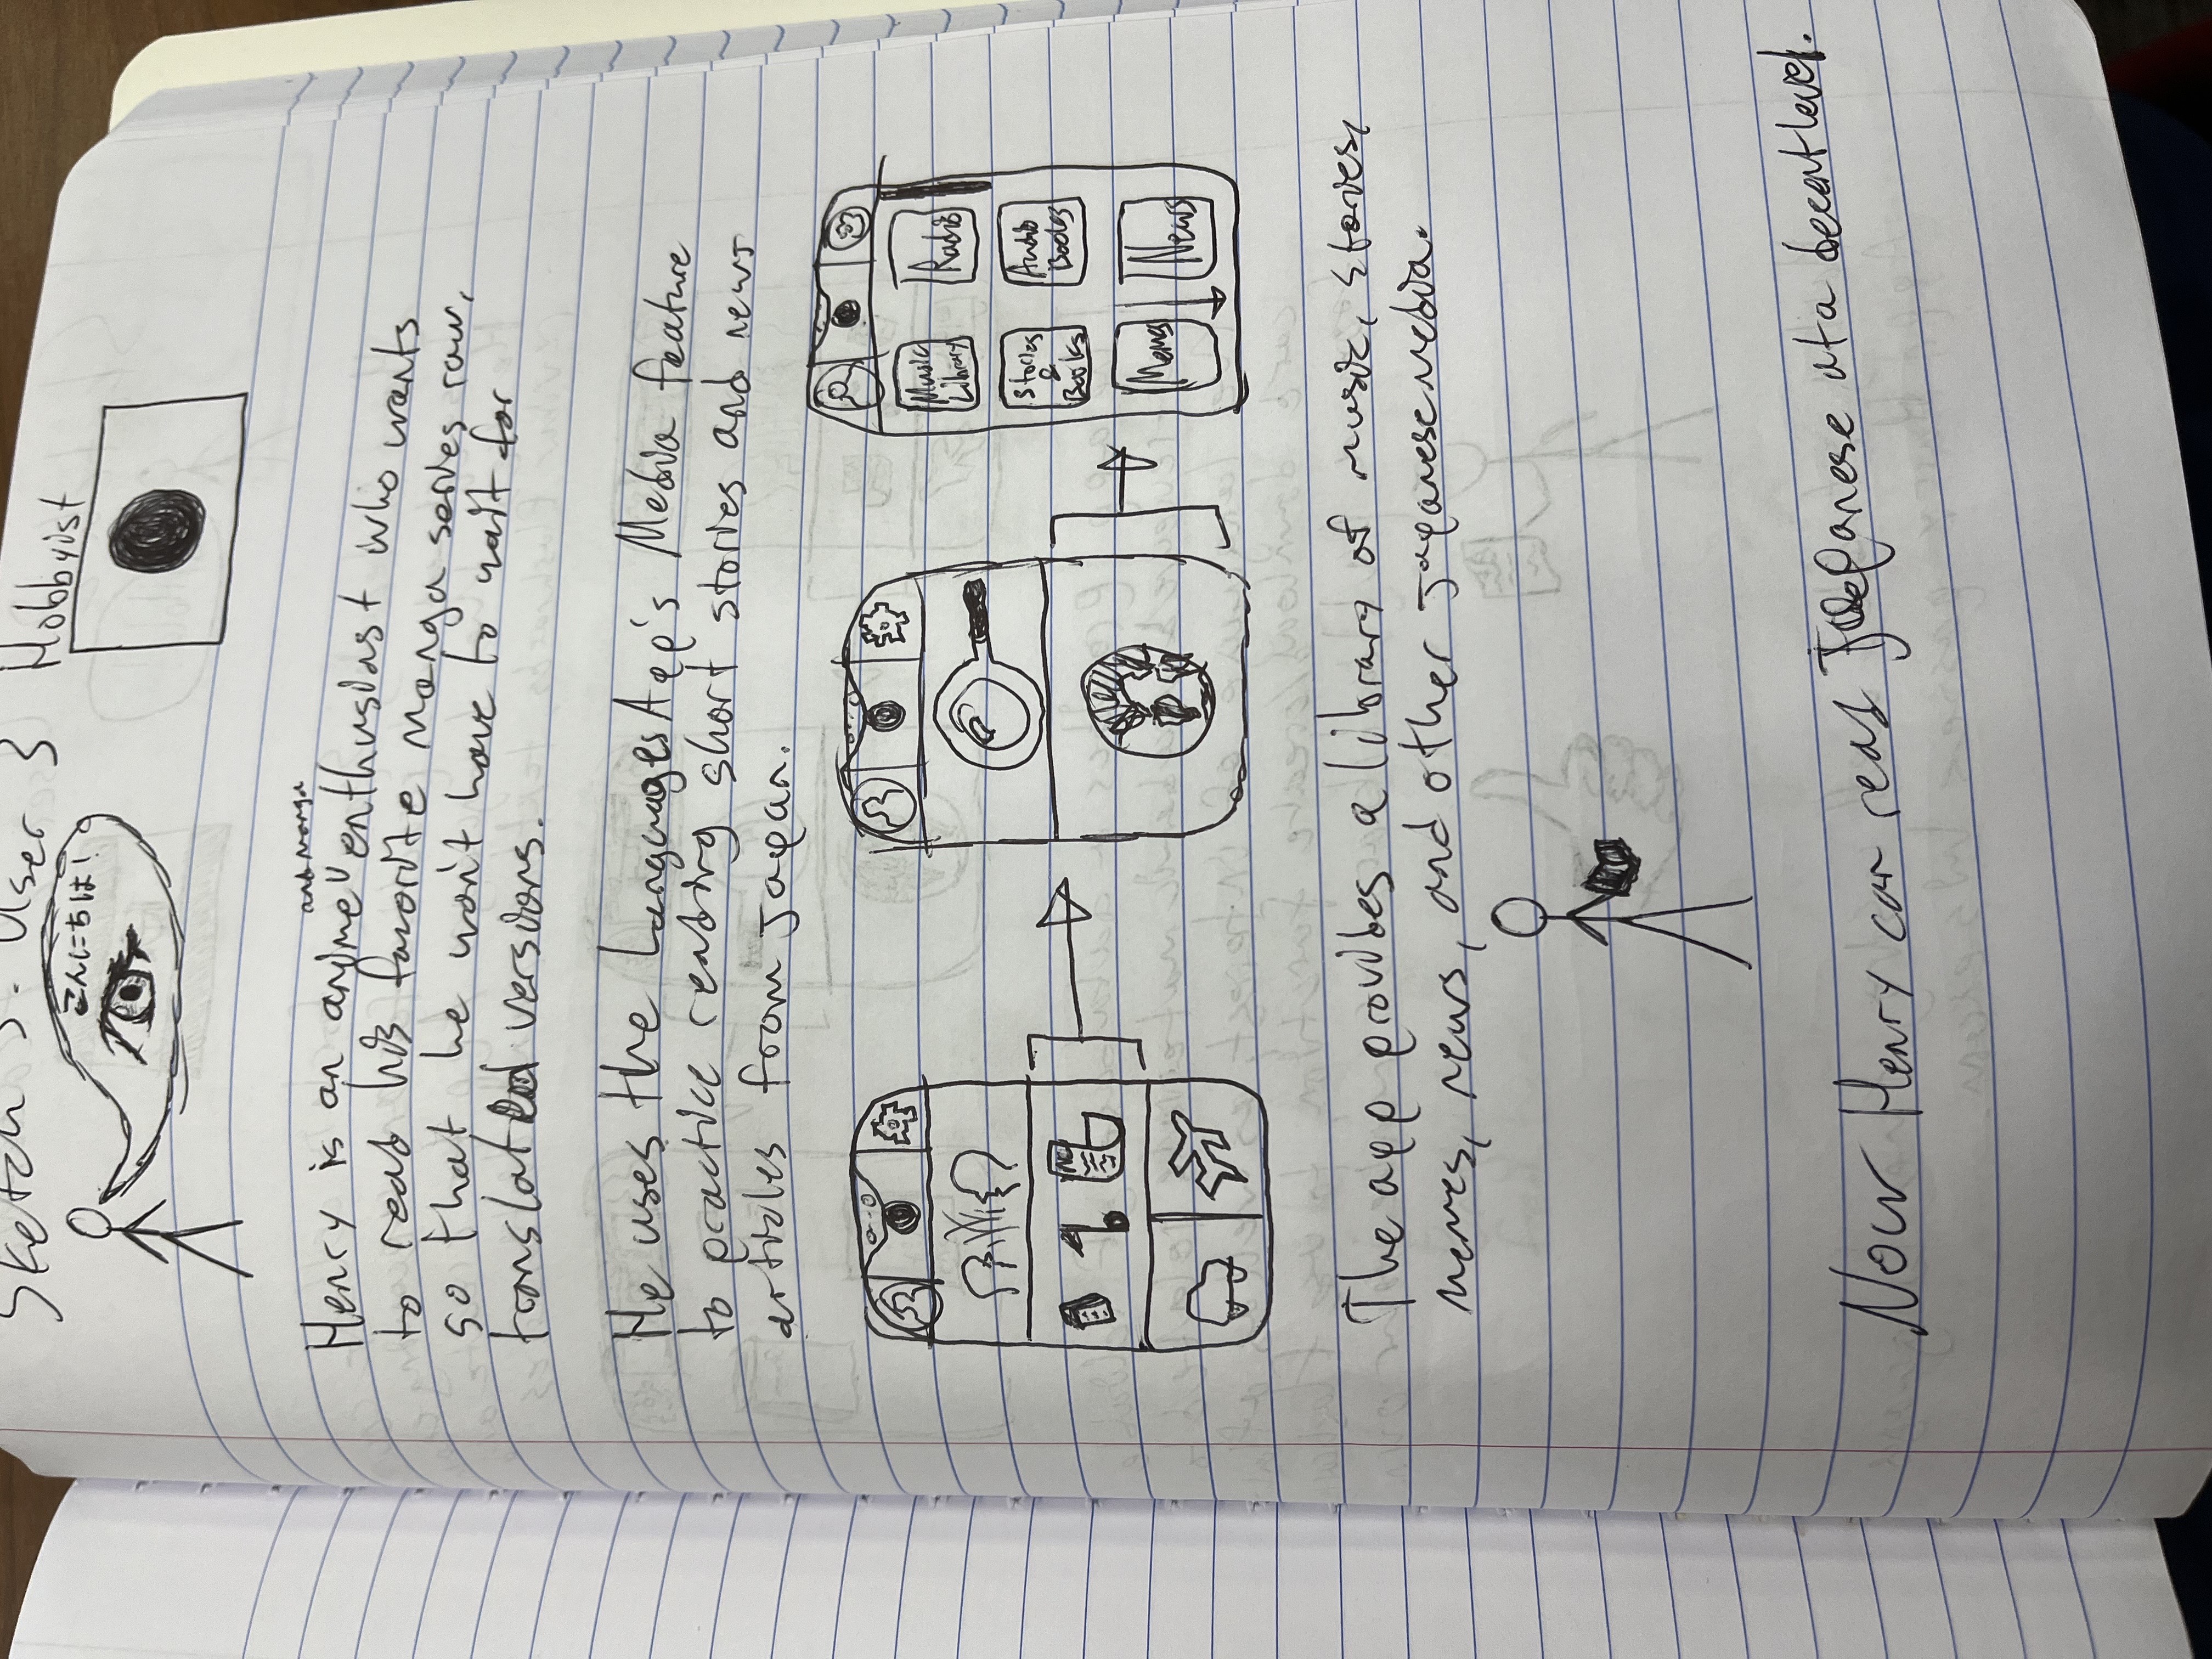 Sketch 3: User 3 Hobbyist
こんにちは!
and manga
Henry is an anime enthusiast who wants
to read his favorite manga series raw,
so that he won't have to wait for
translated versions.
He uses the LanguagesApp's Media feature
to practice reading short stories and news
articles from Japan.
Music
Library
Radio
Stories
&
Books
Audio
Books
Memes
News
The app provides a library of music, stories,
memes, news, and other Japanese media.
Now Henry can read Japanese at a decent level.